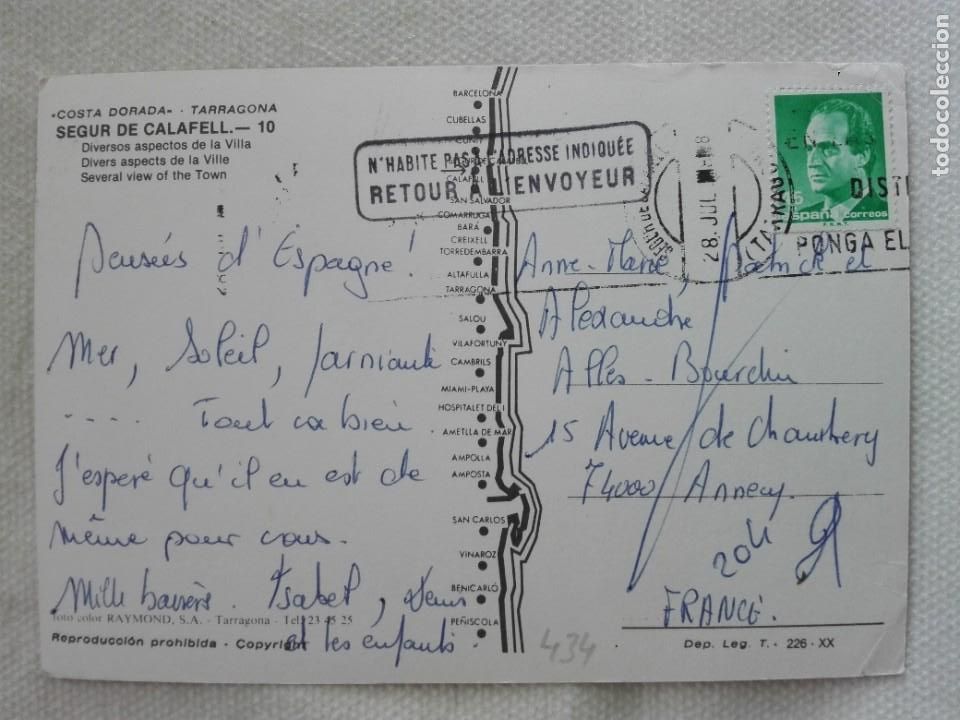 «COSTA DORADA» · TARRAGONA
SEGUR DE CALAFELL.— 10
Diversos aspectos de la Villa
Divers aspects de la Ville
Several view of the Town
BARCELONA
CUBELLAS
CUNIT
CALAFELL
SAN SALVADOR
COMARRUGA
BARÁ
CREIXELL
TORREDEMBARRA
ALTAFULLA
TARRAGONA
SALOU
VILAFORTUNY
CAMBRILS
MIAMI-PLAYA
HOSPITALET DEL I
AMETLLA DE MAR
AMPOLLA
AMPOSTA
SAN CARLOS
VINAROZ
BENICARLÓ
PEÑISCOLA
N'HABITE PAS L'ADRESSE INDIQUÉE
RETOUR A L'ENVOYEUR
28. JUL
(TARRAGONA)
DISTR
PONGA EL
5
españa correos
Pensées d'Espagne!
Mer, Soleil, farniente
.... Tout va bien
J'esperé qu'il en est de
même pour vous.
Mille baisers. Isabel, Denis
et les enfants.
foto color RAYMOND, S.A. - Tarragona - Tel. 23 45 25
Reproducción prohibida - Copyright
Anne-Marie, Patrick et
Alexandre
Allès-Bourdin
15 Avenue de Chambery
74000 Annecy.
204
FRANCE.
434
Dep. Leg. T. - 226 - XX
todocoleccion